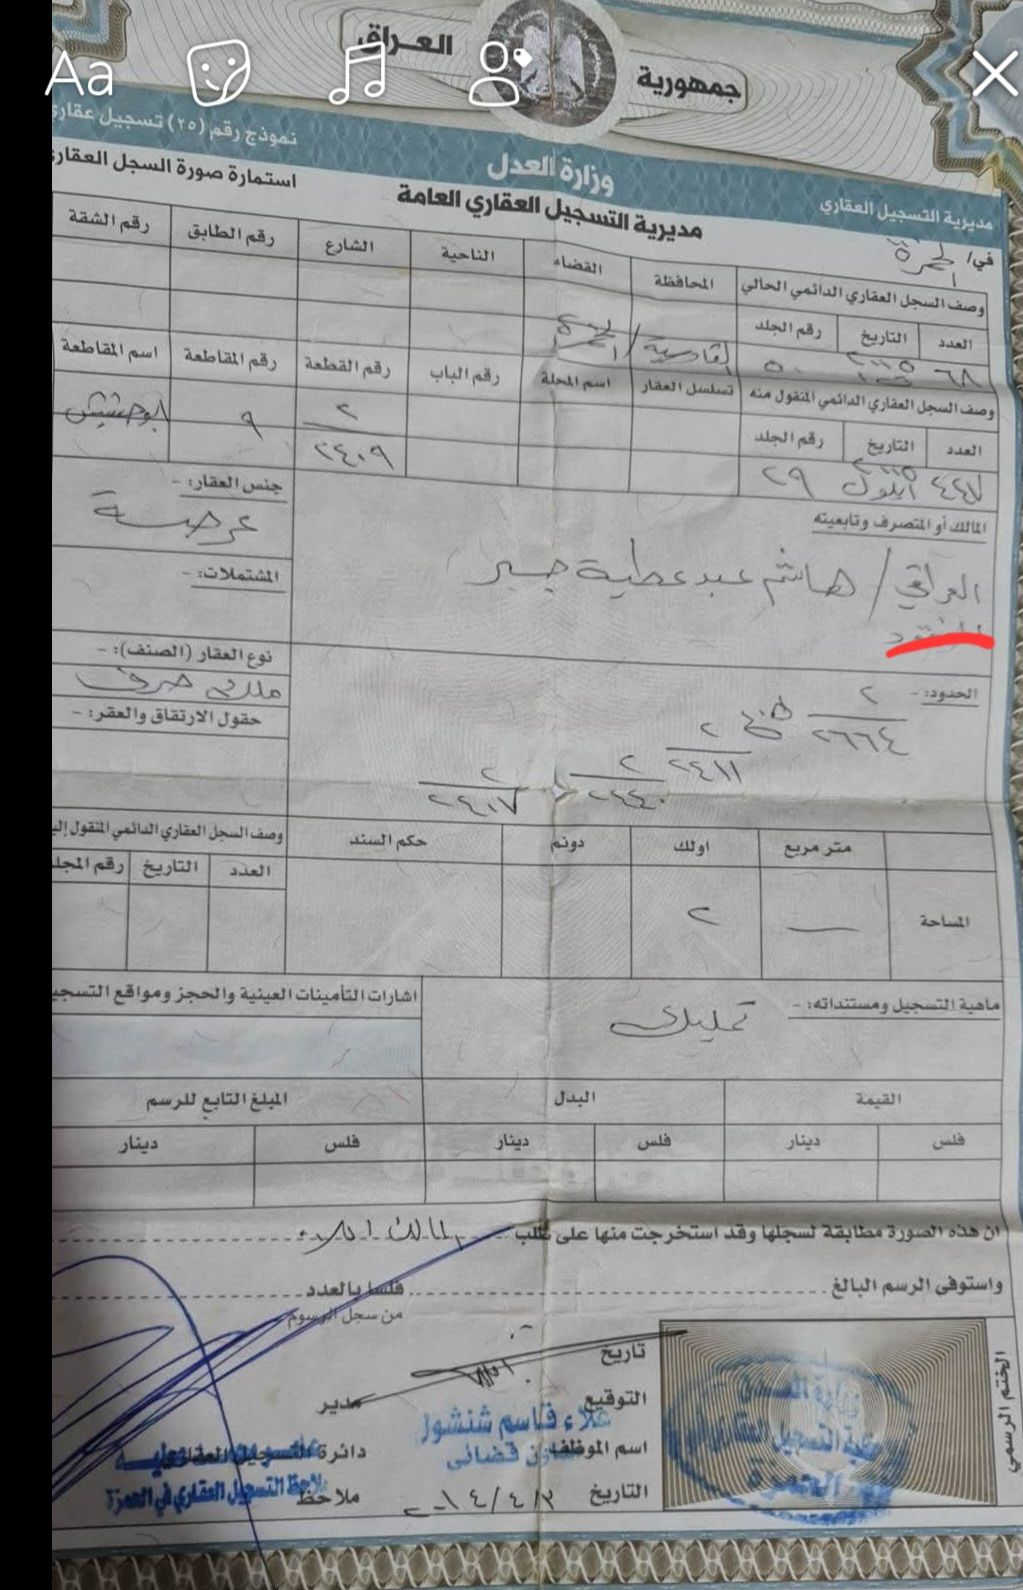 Aa
جمهورية العراق
وزارة العدل
مديرية التسجيل العقاري العامة
مديرية التسجيل العقاري
نموذج رقم (٢٥) تسجيل عقاري
استمارة صورة السجل العقاري
في/ الحمزة
وصف السجل العقاري الدائمي الحالي
المحافظة
القضاء
الناحية
الشارع
رقم الطابق
رقم الشقة
العدد
التاريخ
رقم الجلد
القادسية / الحمزة
٦٨
٥٠
وصف السجل العقاري الدائمي المنقول منه
تسلسل العقار
اسم المحلة
رقم الباب
رقم القطعة
رقم المقاطعة
اسم المقاطعة
العدد
التاريخ
رقم الجلد
٢
٢٤٠٩
٩
ابو حشيش
٤٤٧
ايلول
٢٩
المالك أو المتصرف وتابعيته
العراقي / هاشم عبد عطية جبر
جنس العقار:-
عرصة
المشتملات:-
نوع العقار (الصنف):-
ملك صرف
حقول الارتفاق والعقر:-
الحدود:-
٢
٢٦٦٤
٢
٢٤١١
٢
٢٤٤٠
٢
٢٤٠٧
متر مربع
اولك
دونم
حكم السند
وصف السجل العقاري الدائمي المنقول إلي
العدد
التاريخ
رقم المجلد
المساحة
—
٢
ماهية التسجيل ومستنداته:-
تمليك
اشارات التأمينات العينية والحجز ومواقع التسجيل
القيمة
البدل
المبلغ التابع للرسم
فلس
دينار
فلس
دينار
فلس
دينار
ان هذه الصورة مطابقة لسجلها وقد استخرجت منها على طلب المالك
واستوفى الرسم البالغ
فلسا بالعدد
من سجل الرسوم
تاريخ
التوقيع
علاء قاسم شنشول
اسم الموظف
قضائي
التاريخ ٢٠١٤/٤/٣
مدير
دائرة التسجيل العقاري
ملاحظ
ملاحظ التسجيل العقاري في الحمزة
الختم الرسمي
وزارة العدل